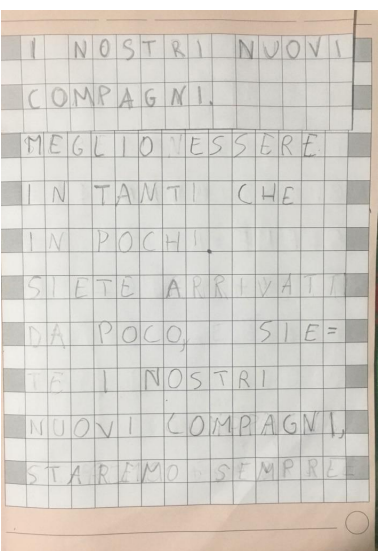 I NOSTRI NUOVI
COMPAGNI.
MEGLIO ESSERE
IN TANTI CHE
IN POCHI.
SIETE ARRIVATI
DA POCO, SIE=
TE I NOSTRI
NUOVI COMPAGNI,
STAREMO SEMPRE